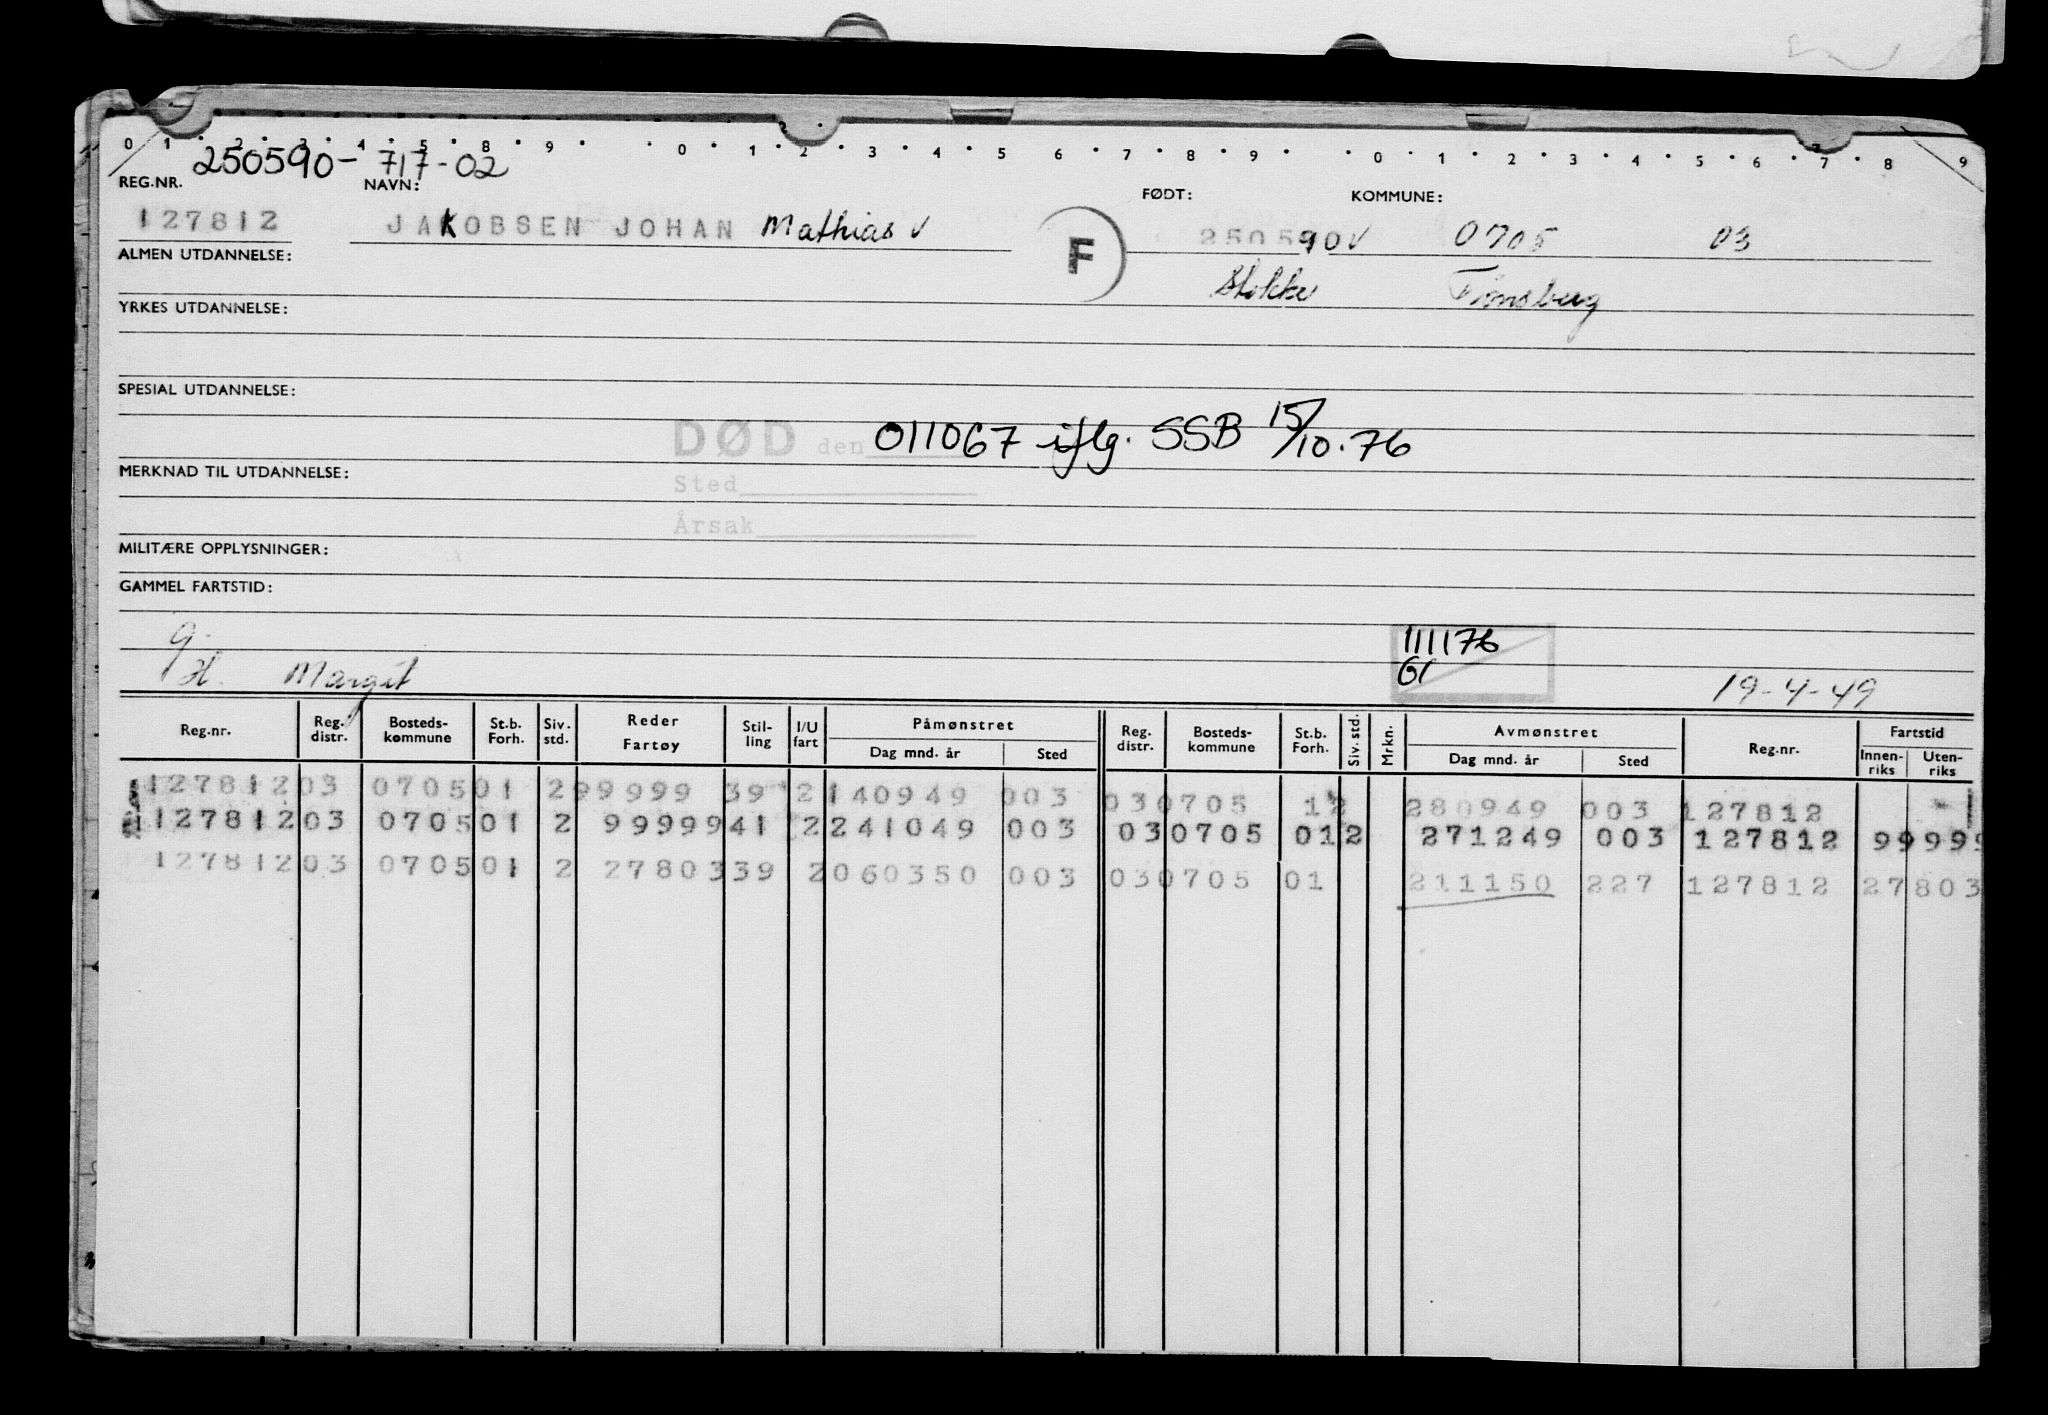 0 1 2 3 4 5 8 9 0 1 2 3 4 5 6 7 8 9 0 1 2 3 4 5 6 7 8 9
250590-717-02
REG.NR. NAVN: FØDT: KOMMUNE:
127812 JAKOBSEN JOHAN Mathias V F 250590 V 0705 03
ALMEN UTDANNELSE: Stokke Tønsberg
YRKES UTDANNELSE:
SPESIAL UTDANNELSE:
DØD den 011067 iflg. SSB 15/10.76
MERKNAD TIL UTDANNELSE:
Sted
Årsak
MILITÆRE OPPLYSNINGER:
GAMMEL FARTSTID:
111176
g. H. Margit 19-4-49
Reg.nr. Reg. distr. Bosteds-kommune St.b. Forh. Siv. std. Reder Fartøy Stil-ling I/U fart Påmønstret Dag mnd. år Sted Reg. distr. Bosteds-kommune St.b. Forh. Siv. std. Mrkn. Avmønstret Dag mnd. år Sted Reg.nr. Fartstid Innen-riks Uten-riks
127812 03 0705 01 2 99999 39 2 140949 003 03 0705 1 2 280949 003 127812
127812 03 0705 01 2 99999 41 2 241049 003 03 0705 01 2 271249 003 127812 99999
127812 03 0705 01 2 27803 39 2 060350 003 03 0705 01 211150 227 127812 27803